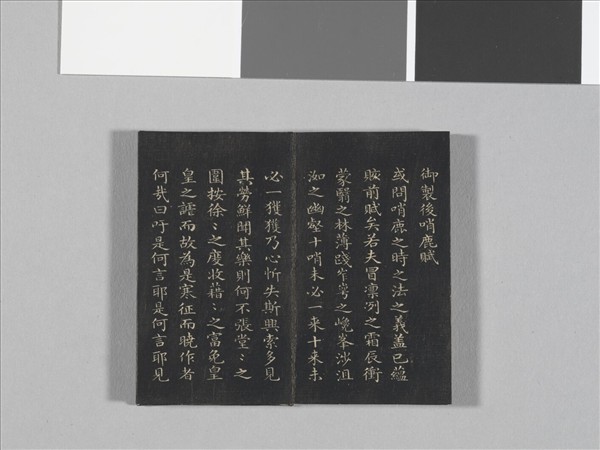 御製後哨鹿賦
或問哨鹿之時之法之義蓋已蘊
賅前賦矣若夫冒凛冽之霜辰衝
蒙翳之林薄踐岝崿之巉峯涉沮
洳之幽壑十哨未必一来十来未
必一獲獲乃心忻失斯興索多見
其勞鮮聞其樂則何不張堂〻之
圍按徐〻之度收藉〻之富免皇
皇之謔而故為是寒征而曉作者
何哉曰吁是何言耶是何言耶見